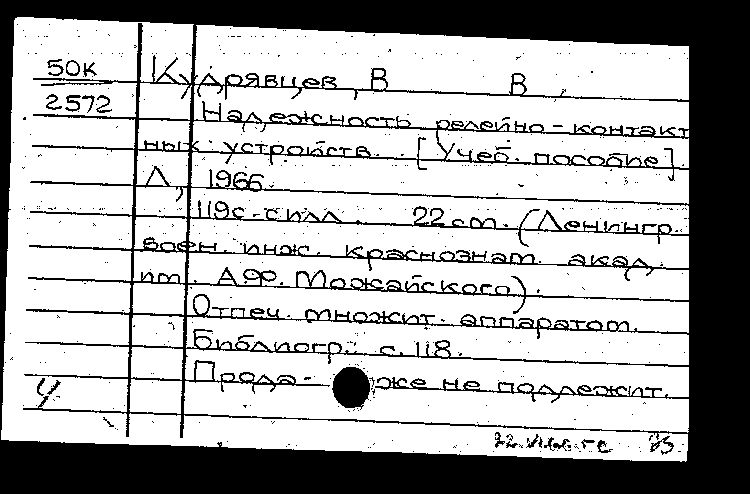 50к
2572
Кудрявцев, В В.
Надежность релейно-контакт
ных устройств. [Учеб. пособие]
Л, 1966.
119с. с илл. 22 см. (Ленингр.
воен. инж. краснознам. акад.
им. А.Ф. Можайского).
Отпеч. множит. аппаратом.
Библиогр.: с. 118.
Прода- же не подлежит.